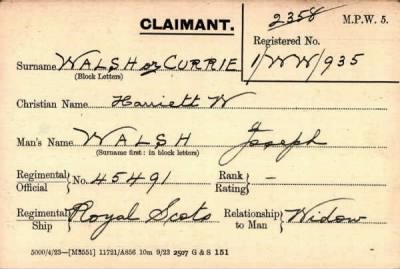 CLAIMANT.
2358 M.P.W. 5.
Registered No.
1/WW/935
Surname WALSH or CURRIE
(Block Letters)
Christian Name Harriett W
Man's Name WALSH Joseph
(Surname first: in block letters)
Regimental Official } No. 45491 Rank Rating } –
Regimental Ship } Royal Scots Relationship to Man } Widow
5000/4/23—[M3551] 11721/A856 10m 9/23 2507 G & S 151